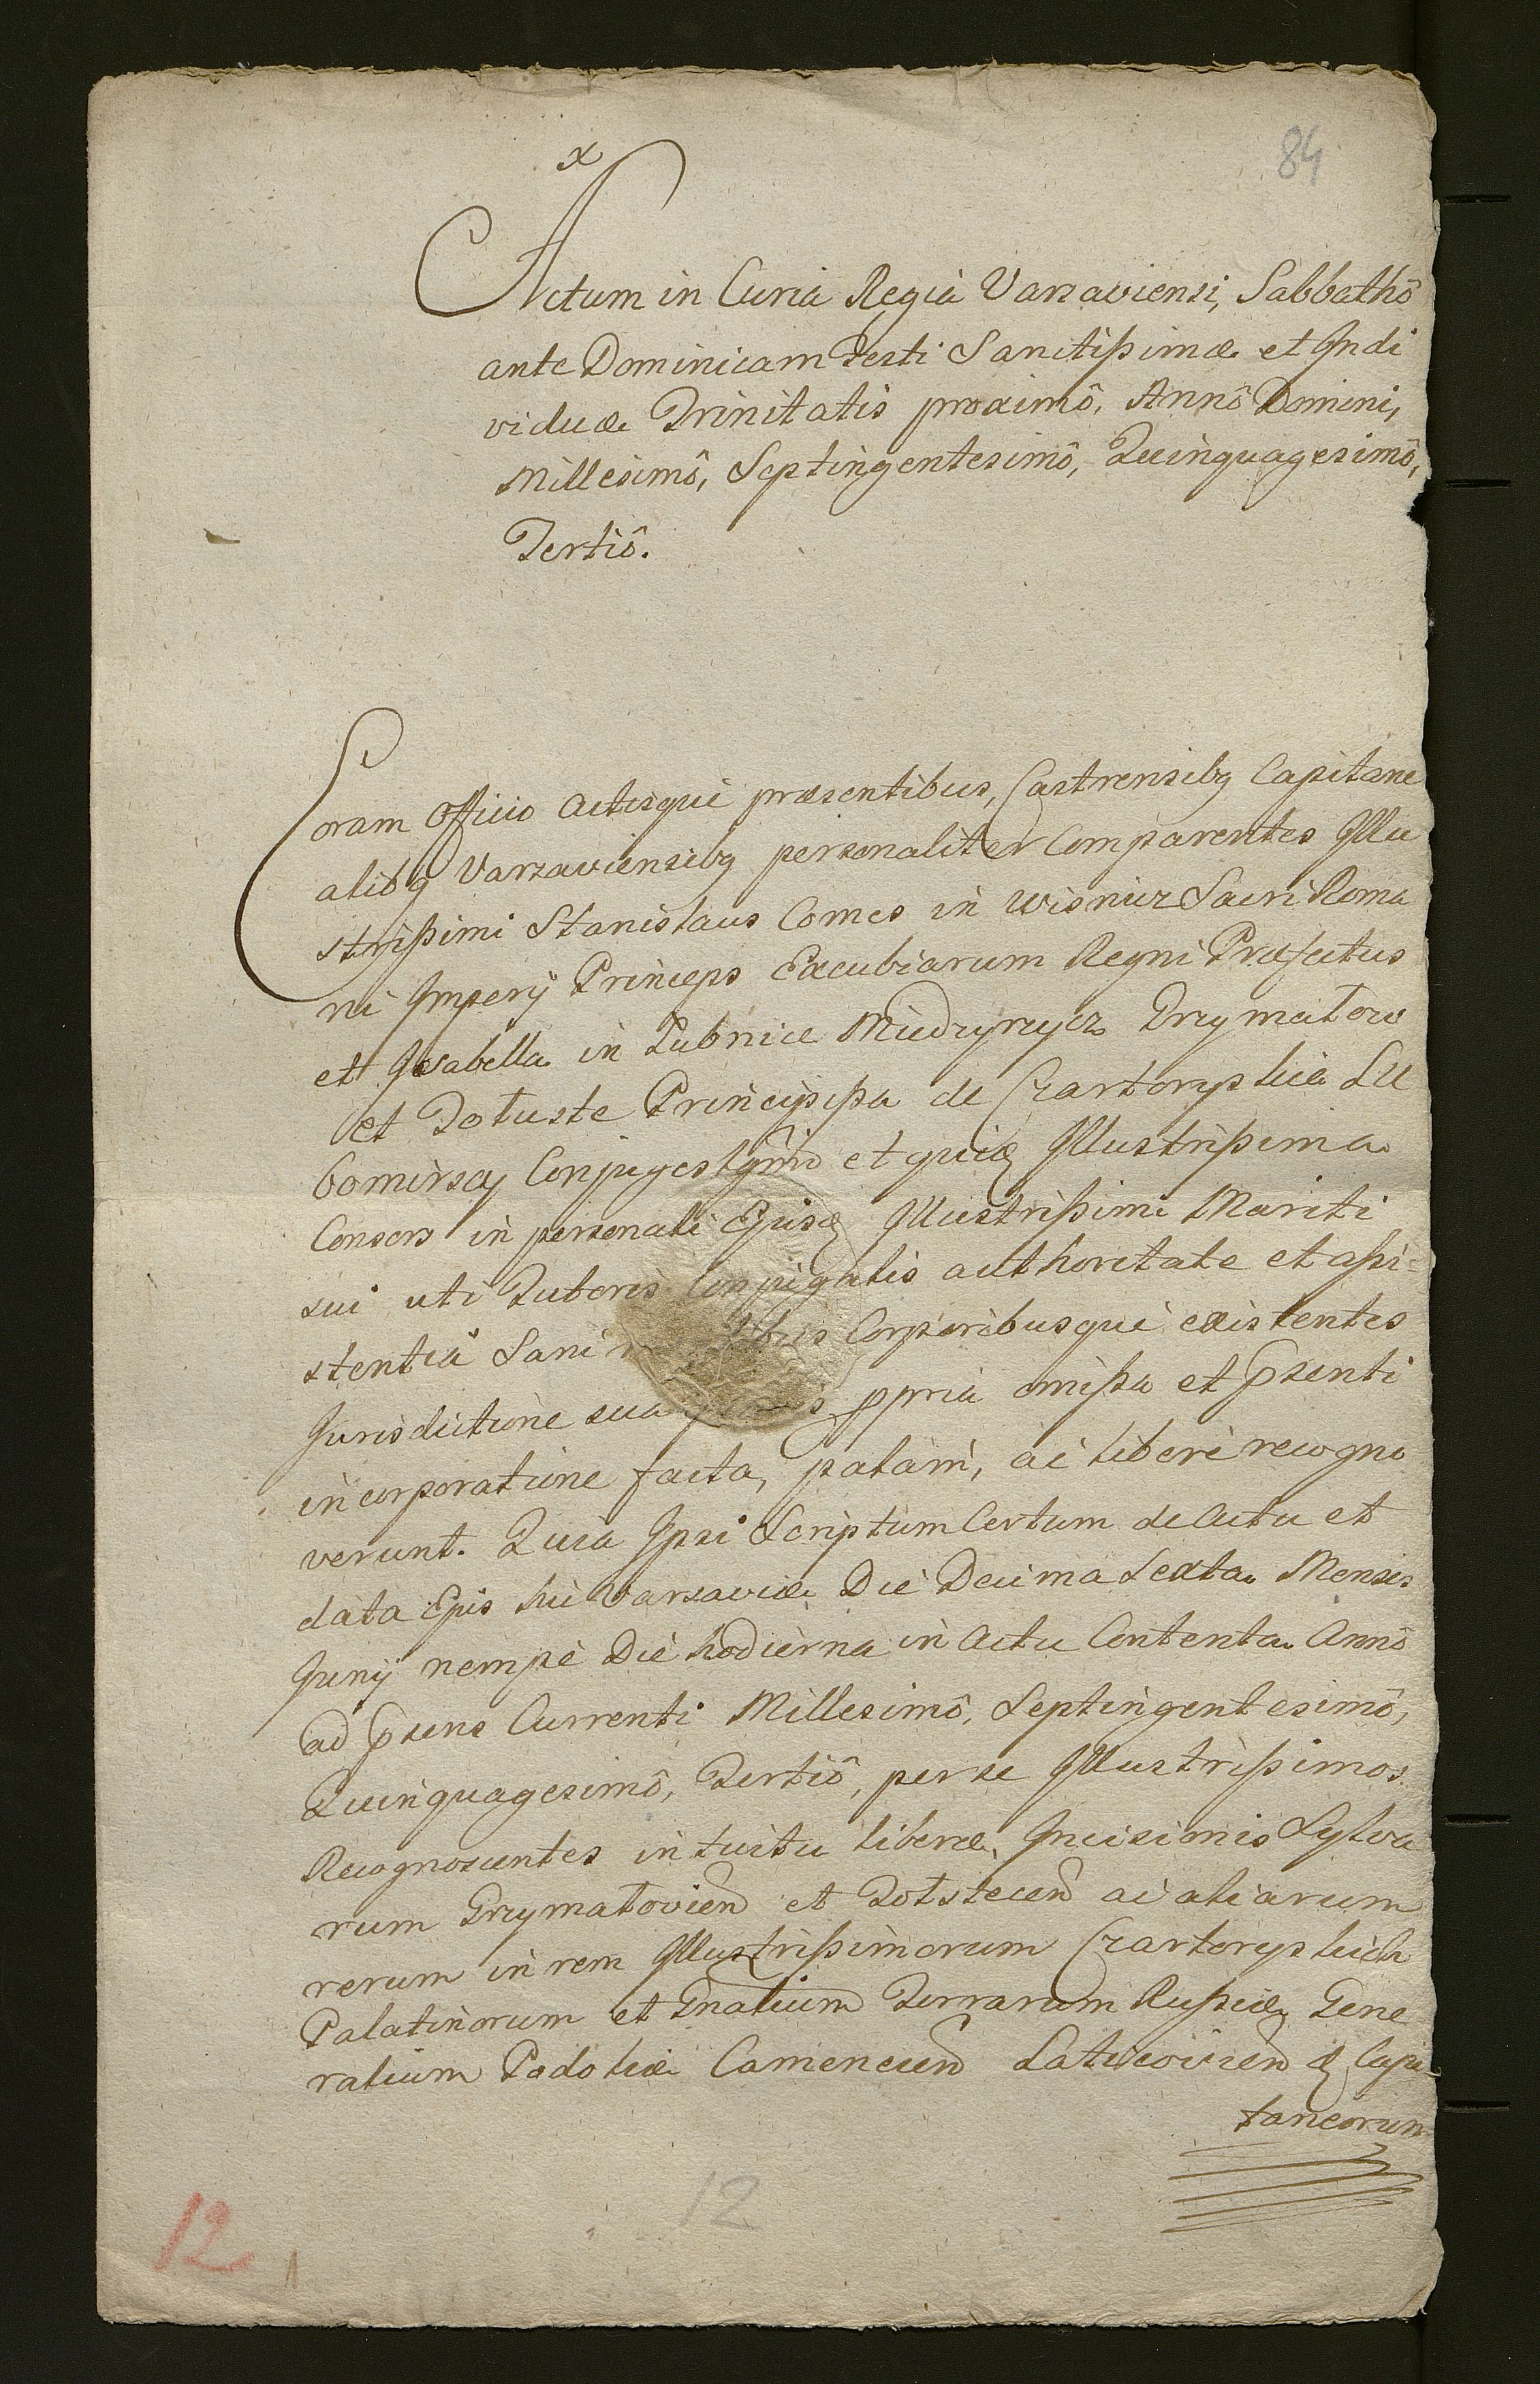 x
84
Actum in Curia Regià Varsaviensi, Sabbathô
ante Dominicam Festi Sanctißimæ et Indi
viduæ Trinitatis proximô, Annô Domini,
Millesimô, Septingentesimô, Quinquagesimô,
Tertiô.
Coram Officio Actisque præsentibus, Castrensibq Capitane
alibq Varsaviensibq personaliter Comparentes Illu
strißimi Stanislaus Comes in Wisnicz Sacri Roma
ni Imperij Princeps Excubiarum Regni Præfectus
et Isabella in Lubnice Miedzyrzycz Grzymałow
et Tołuste Principißa de Czartoryskie Lu
bomirscy Conjuges et quidem Illustrißima
Consors in personali Ejusq Illustrißimi Mariti
sui uti Tutoris Conjugalis authoritate et aßi=
stentiâ Sani Corporibusque existentes
Jurisdictione sua ppria omißa et psenti
incorporatione facta, palàm, ac liberè recogno
verunt. Quia Ipsi Scriptum Certum de Actu et
data Ejus hic Varsaviæ Die Decima Sexta Mensis
Junij nempè Die hodierna in Actu Contenta Annô
ad psens Currenti Millesimô, Septingentesimô,
Quinquagesimô, Tertiô, per se Illustrißimos
Recognoscentes intuitu liberæ Incisionis Sylva
rum Grzymałovien et Tołstecen ac aliarum
rerum in rem Illustrißimorum Czartoryskich
Palatinorum et Gnalium Terrarum Rußiæ Gene
ralium Podoliæ Camenecen Latycovien & Capi
taneorum
12
12
1